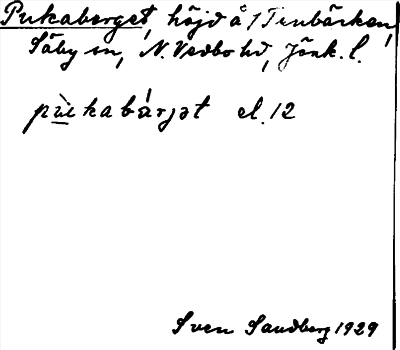 Pukaberget, höjd å 1 Tinbärken,
Säby sn, N. Vedbo hd, Jönk. l.
pùkabárjət el. 12
Sven Sandberg 1929